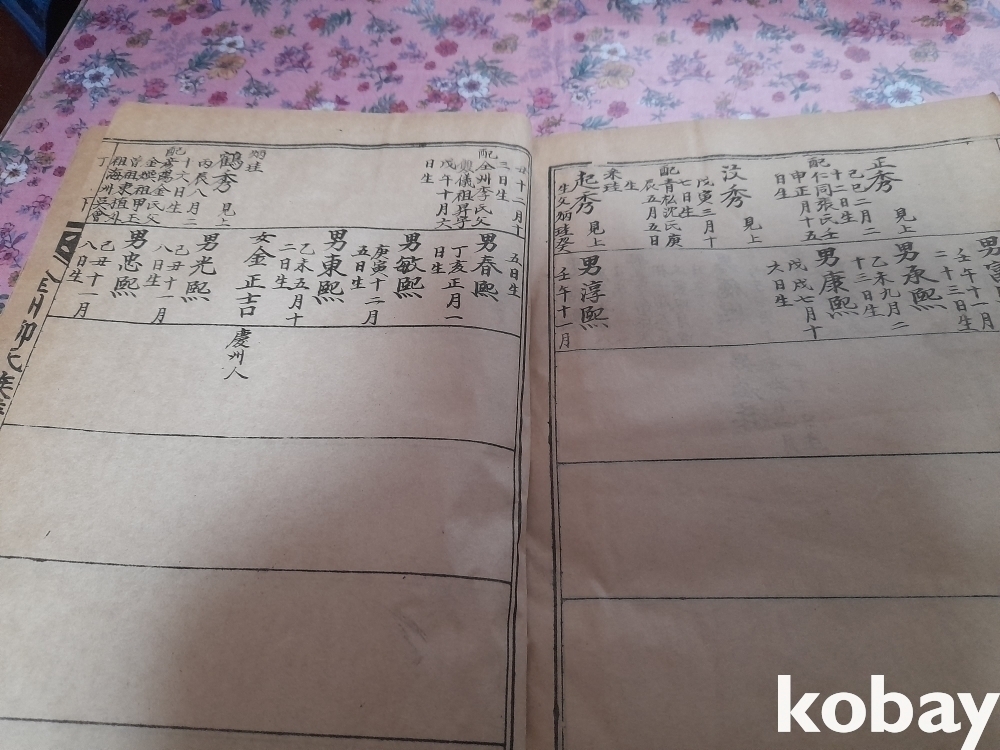 正秀 見上
己巳二月二
十二日生
配仁同張氏壬
申正月十五
日生
汶秀 見上
戊寅三月十
七日生
配青松沈氏庚
辰五月五日
生
起秀 見上
壬午十一月
二十三日生
男承熙
乙未九月二
十三日生
男康熙
戊戌七月十
六日生
男淳熙
壬午十一月
十二月十
三日生
配全州李氏父
戊午十月六
日生
炳珪
鶴秀 見上
丙辰八月二
十六日生
祖海州吳
五日生
男春熙
丁亥正月一
日生
男敏熙
庚寅十二月
五日生
男東熙
乙未五月十
二日生
女金正吉 慶州人
男光熙
己丑十一月
八日生
男忠熙
己丑十一月
八日生
kobay